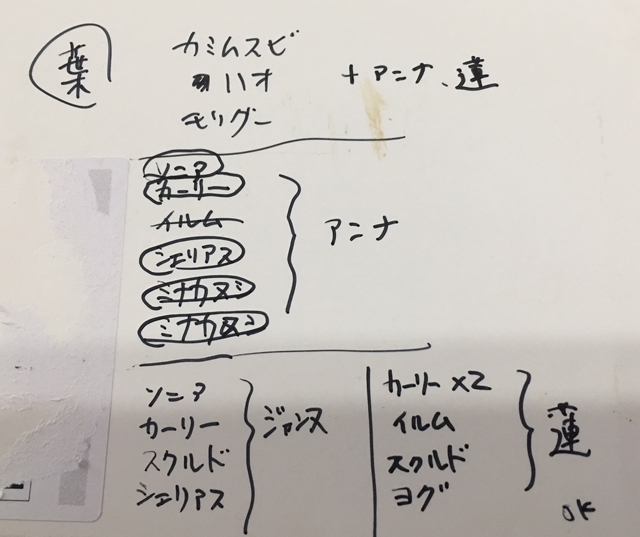 葉
カミムスビ
ハオ
モリグー
+アンナ、蓮
ソニア
カーリー
イルム
シェリアス
ミナカヌシ
ミナカヌシ
アンナ
ソニア
カーリー
スクルド
シェリアス
ジャンヌ
カーリー×2
イルム
スクルド
ヨグ
蓮
OK